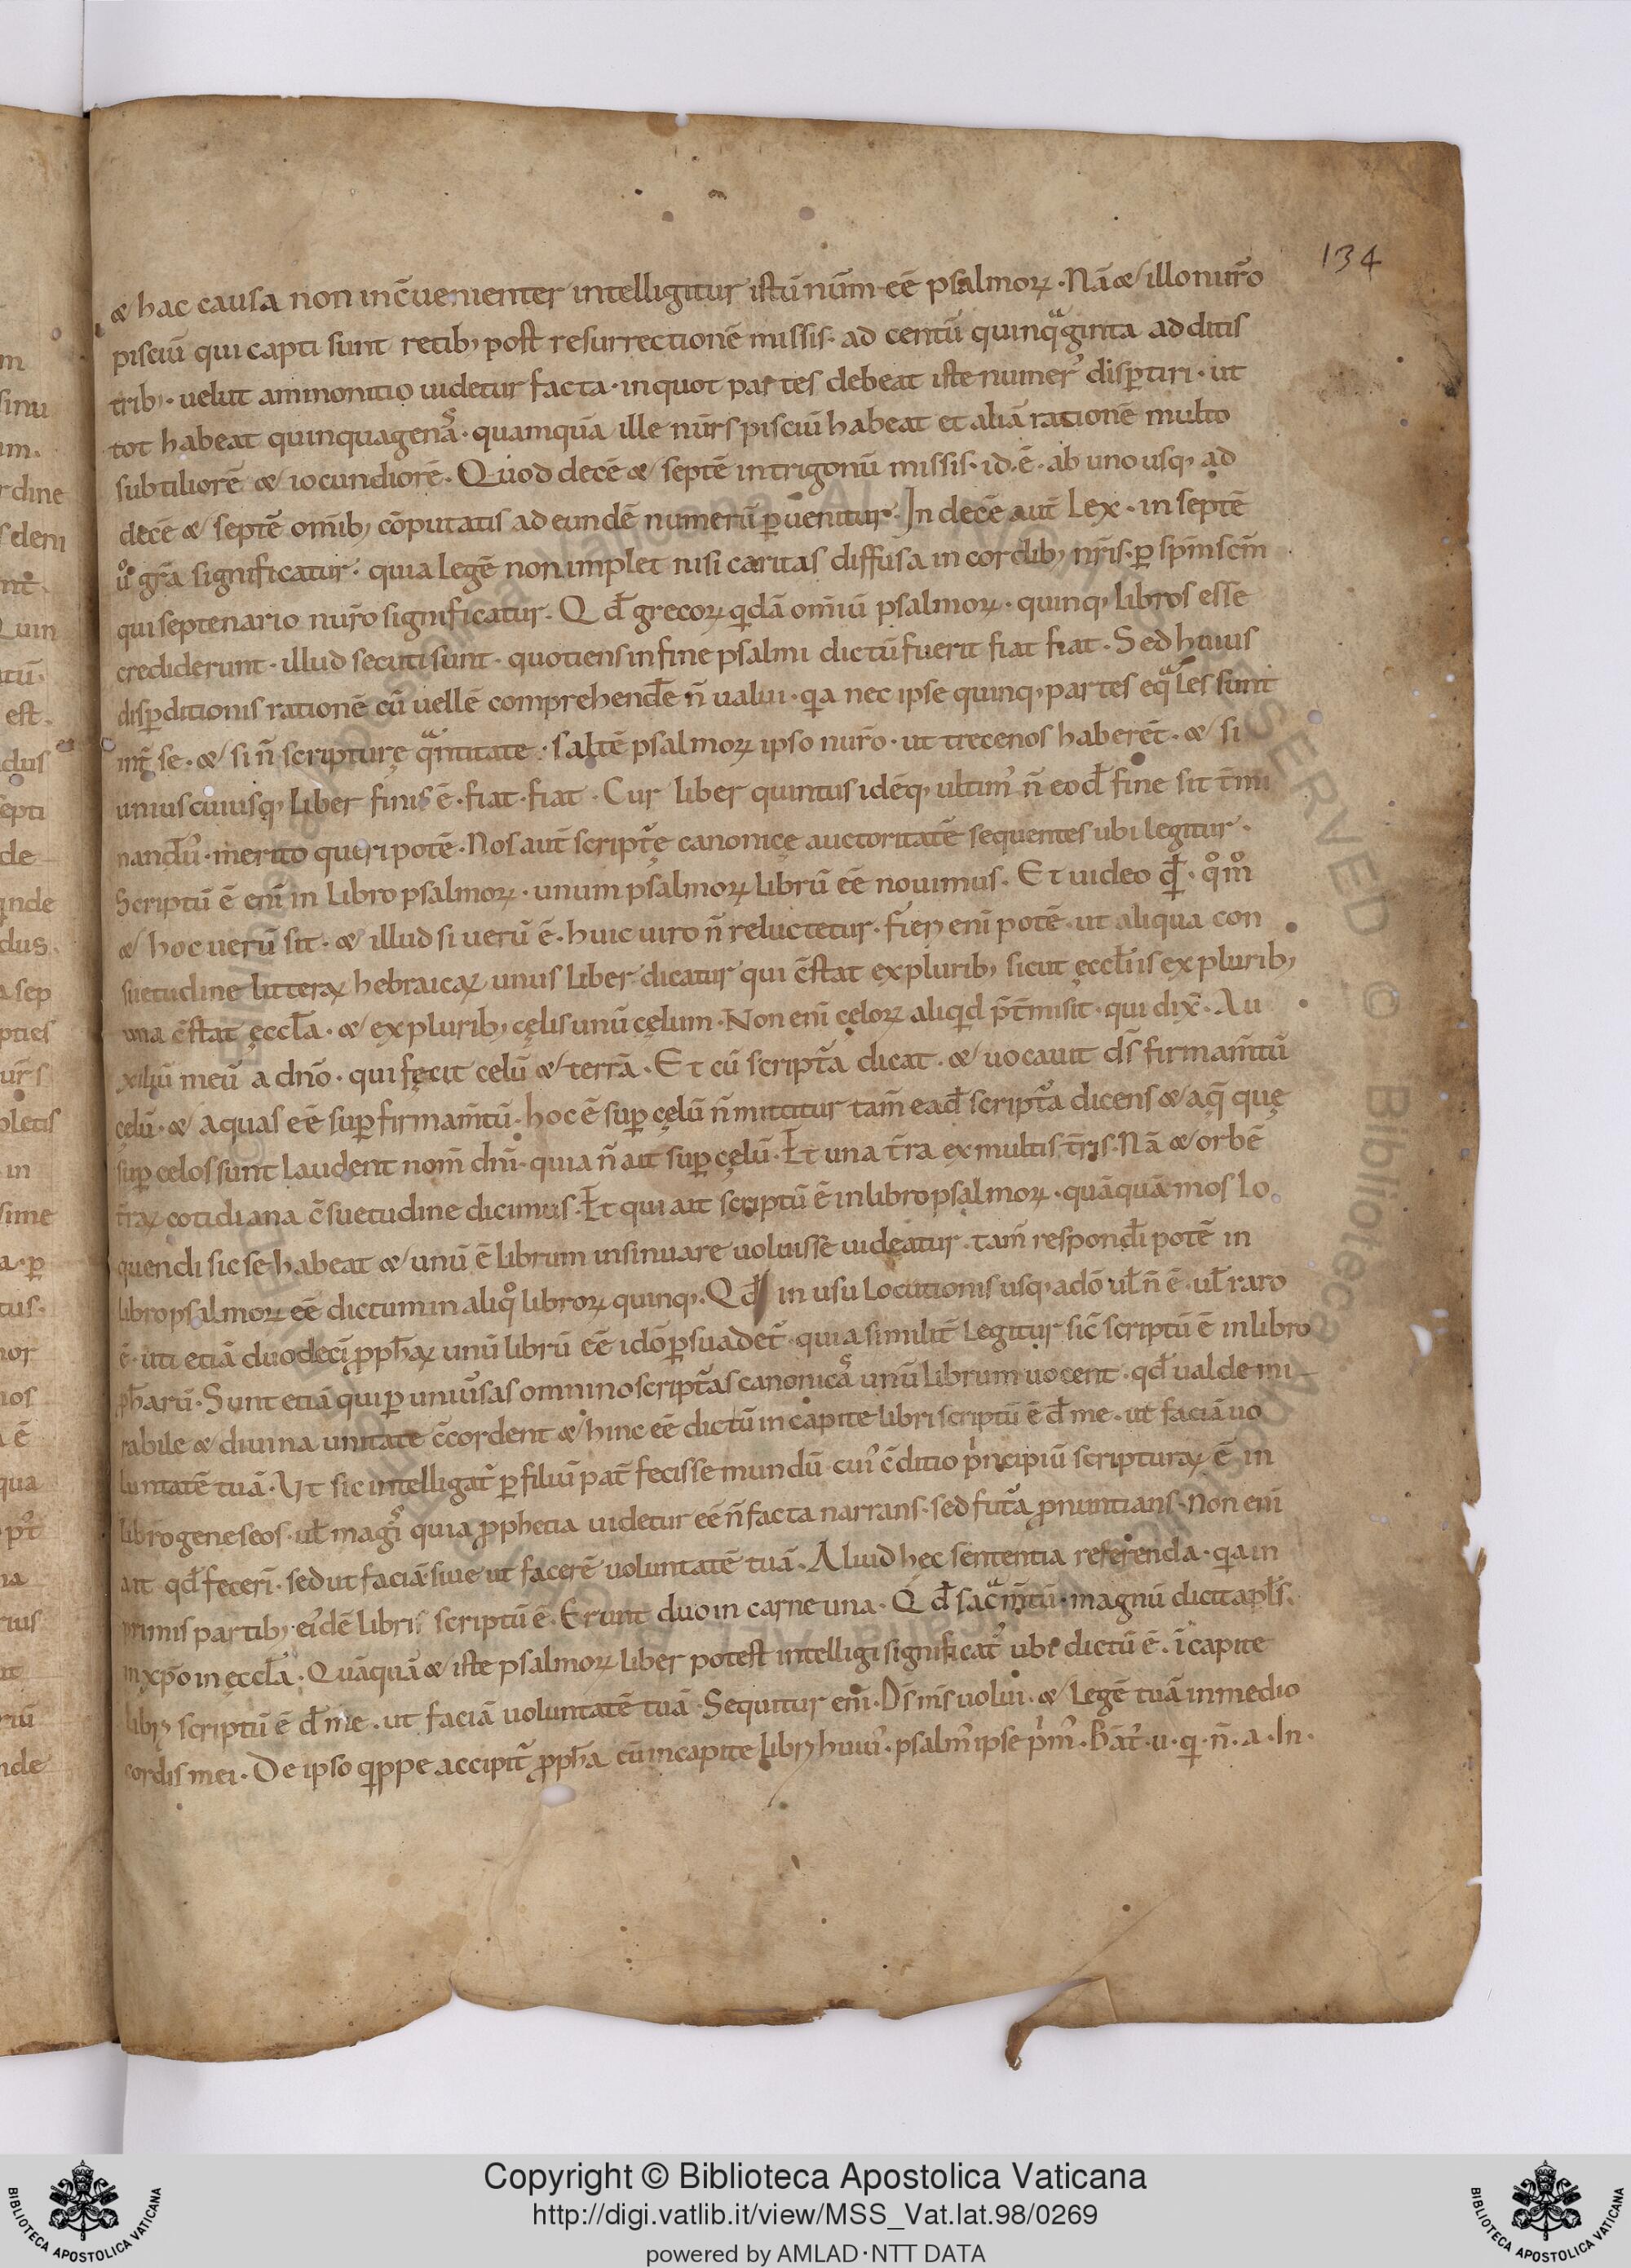 134
& hac causa non inc̄uenienter intelligitur istū nūm eē psalmoꝝ · Nā & illo nūro
pisciū qui capti sunt retib; post resurrectionē missis · ad centū quinqͣginta additis
trib; · uelut ammonitio uidetur facta · in quot partes debeat iste numer᾽ disꝑtiri · ut
tot habeat quinquagenā · quamquā ille nūrs pisciū habeat et aliā rationē multo
subtiliorē & iocundiorē · Quod decē & septē in trigonū missis · id · ē · ab uno usq; ad
decē & septē omīb; cōputatis ad eundē numerū ꝑuenitur · In decē aut̄ Lex · in septē
uͦ grā significatur · quia legē non implet nisi caritas diffusa in cordib; nr̄is · ꝑ spm̄ scm̄
qui septenario nūro significatur · Qd̄ grecoꝝ qͥdā omīū psalmoꝝ · quinq; libros esse
crediderunt · illud secuti sunt · quotiens in fine psalmi dictū fuerit fiat fiat · Sed huius
disꝑditionis rationē cū uellē comprehend̄e n̄ ualui · qͥa nec ipse quinq; partes eqͣles sunt
int̄ se · & si n̄ scripturę qͣntitate · saltē psalmoꝝ ipso nūro · ut trecenos haberēt · & si
uniuscuiusq; liber finis ē · fiat · fiat · Cur liber quintus idēq; ultim᾽ n̄ eod̄ fine sit t̄mi
nandus · merito queri potē · Nos aut̄ scriptͣę canonicę auctoritatē sequentes ubi legitur ·
Scriptū ē enī in libro psalmoꝝ · unum psalmoꝝ librū eē nouimus · Et uideo qͥd̄ · qͦmͦ
& hoc uerū sit · & illud si uerū ē · huic uiro n̄ reluctetur · fieri enī potē ut aliqua con
suetudine litteraꝝ hebraicaꝝ unus liber dicatur qui c̄stat ex plurib; sicut ęccl̄iis ex plurib;
una c̄stat ęccl̄a · & ex plurib; cęlis unū cęlum · Non enī cęloꝝ aliqͥd p̄t̄misit · qui dix̄ · Au
xiliū meū a dn̄o · qui fęcit celū & terrā · Et cū scriptͣa dicat · & uocauit ds̄ firmam̄tū
cęlū · & aquas eē suꝑ firmam̄tū · hoc ē suꝑ cęlū n̄ mititur tam̄ ead̄ scriptͣa dicens & aq̄ quę
suꝑ celos sunt laudent nom̄ dn̄i · quia n̄ ait suꝑ cęlū · Et una t̄ra ex multis t̄ris · Nā & orbē
t̄raꝝ cotidiana c̄suetudine dicimus · Et qui ait scriptū ē in libro psalmoꝝ · quāquā mos lo
quendi sic se habeat & unū ē librum insinuare uoluisse uideatur · tam̄ respond̄i potē in
libro psalmoꝝ eē dictum in aliqͦ libroꝝ quinq; · Qd̄ in usu locutionis usq; adō ul̄ n̄ ē · ul̄ raro
ē · uti etiā duodeci ꝓph̄aꝝ unū librū eē idō ꝑsuadet᾽ · quia similit̄ legitur sic̄ scriptū ē in libro
ph̄arū · Sunt etiā qui ꝑ uniūsas omnino scriptͣas canonicā unū librum uocent · qd̄ ualde mi
rabile & diuina unitate c̄cordent & hinc eē dictū in capite libri scriptū ē d̄ me · ut faciā uo
luntatē tuā · Vt sic intelligat᾽ ꝑ filiū pat̄ fecisse mundū cui᾽ c̄ditio pͥncipiū scripturaꝝ ē in
libro geneseos · ul̄ magͥ quia ꝓphetia uidetur eē n̄ facta narrans · sed futͣa ꝓnuntians · Non enī
ait qd̄ fecerī · sed ut faciā siue ut facerē uoluntatē tuā · Aliud hęc sententia referenda · qͥa in
primis partib; ei᾽dē libris scriptū ē · Erunt duo in carne una · Qd̄ sacͣm̄tū magnū dicit apl̄s ·
in xp̄o in ęccl̄a · Quāquā & iste psalmoꝝ liber potest intelligi significat᾽ ubi dictū ē · ī capite
libri scriptū ē d̄ me · ut faciā uoluntatē tuā · Sequitur enī · Ds̄ ms̄ uolui · & legē tuā in medio
cordis mei · De ipso qͥppe accipit᾽ ꝓph̄a cū in capite libri hui᾽ · psalm᾽ ipse pͥm᾽ · Bāt᾽ · u · qͥ · n̄ · a · In ·
Copyright © Biblioteca Apostolica Vaticana
http://digi.vatlib.it/view/MSS_Vat.lat.98/0269
powered by AMLAD·NTT DATA
BIBLIOTECA APOSTOLICA VATICANA
BIBLIOTECA APOSTOLICA VATICANA